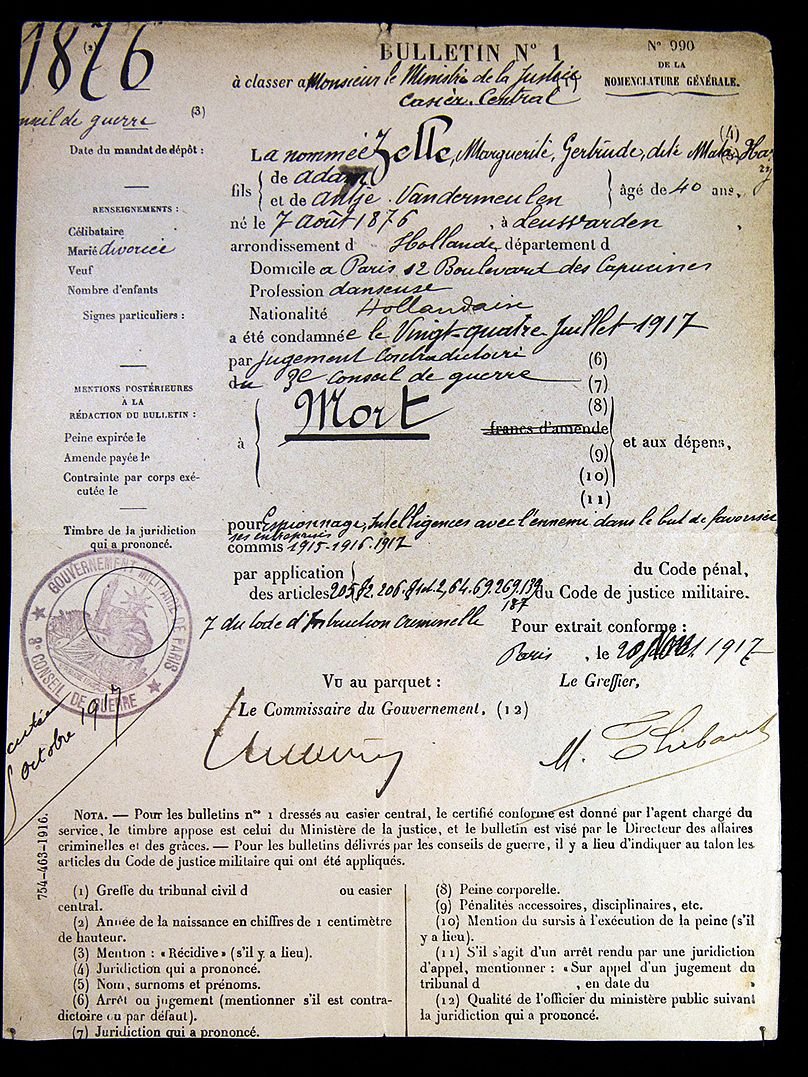 1876
(2)
BULLETIN Nº 1
Nº 990
DE LA
NOMENCLATURE GÉNÉRALE.
à classer a Monsieur le Ministre de la Justice (1)
Casier Central
nseil de guerre (3)
Date du mandat de dépôt :
RENSEIGNEMENTS :
Célibataire
Marié divorcée
Veuf
Nombre d'enfants
Signes particuliers :
MENTIONS POSTÉRIEURES
À LA
RÉDACTION DU BULLETIN :
Peine expirée le
Amende payée le
Contrainte par corps exé-
cutée le
Timbre de la juridiction
qui a prononcé.
(4)
La nommée Zelle, Marguerite, Gertrude, dite Mata Hary
fils { de adam
et de Antje Vandermeulen } âgé de 40 ans,
né le 7 Août 1876, à Leuwarden,
arrondissement d Hollande, département d
Domicile a Paris 12 Boulevard des Capucines
Profession danseuse
Nationalité Hollandaise
a été condamnée le Vingt-quatre Juillet 1917
par jugement Contradictoire (6)
du 3e Conseil de guerre (7)
à { Mort (8)
francs d'amende
(9) et aux dépens,
(10)
(11)
pour Espionnage, Intelligences avec l'ennemi dans le but de favoriser
ses entreprises
commis 1915-1916-1917
par application { du Code pénal,
des articles 205 § 2. 206. 2, 64. 69. 269. 139 du Code de justice militaire.
187
7 du Code d'Instruction Criminelle
Pour extrait conforme :
Paris, le 20 1917
GOUVERNEMENT MILITAIRE DE PARIS
3e CONSEIL DE GUERRE
Vu au parquet :
Le Greffier,
Le Commissaire du Gouvernement, (12)
M. Thibaut
octobre 1917
754-463-1916.
NOTA. — Pour les bulletins nos 1 dressés au casier central, le certifié conforme est donné par l'agent chargé du
service, le timbre appose est celui du Ministère de la justice, et le bulletin est visé par le Directeur des affaires
criminelles et des grâces. — Pour les bulletins délivrés par les conseils de guerre, il y a lieu d'indiquer au talon les
articles du Code de justice militaire qui ont été appliqués.
(1) Greffe du tribunal civil d ou casier
central.
(2) Année de la naissance en chiffres de 1 centimètre
de hauteur.
(3) Mention : « Récidive » (s'il y a lieu).
(4) Juridiction qui a prononcé.
(5) Nom, surnoms et prénoms.
(6) Arrêt ou jugement (mentionner s'il est contra-
dictoire ou par défaut).
(7) Juridiction qui a prononcé.
(8) Peine corporelle.
(9) Pénalités accessoires, disciplinaires, etc.
(10) Mention du sursis à l'exécution de la peine (s'il
y a lieu).
(11) S'il s'agit d'un arrêt rendu par une juridiction
d'appel, mentionner : « Sur appel d'un jugement du
tribunal d , en date du »
(12) Qualité de l'officier du ministère public suivant
la juridiction qui a prononcé.